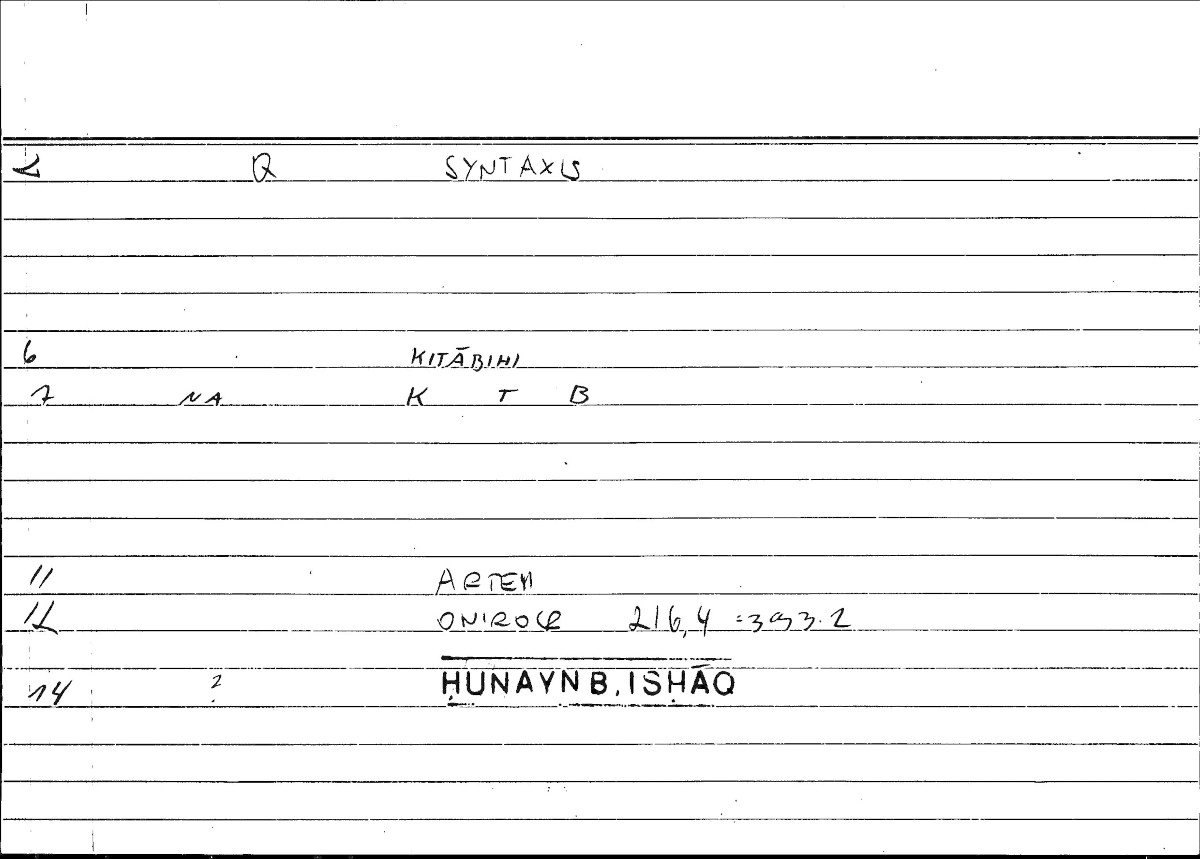 2 Q SYNTAXIS
6 KITĀBIHI
7 NA K T B
11 ARTEM
12 ONIROCR 216,4 =393.2
14 ? ḤUNAYN B. ISḤĀQ